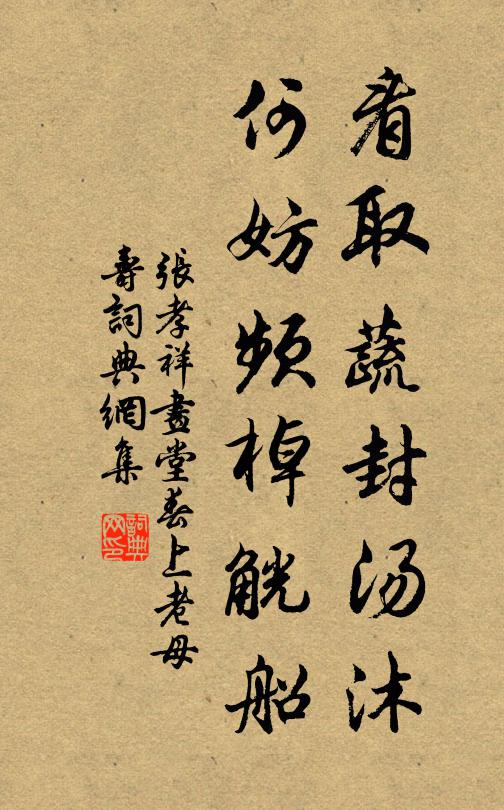 看取蔬封汤沐
何妨频棹觥船
張孝祥畫堂春上老母
壽詞典網集
詞典
网印